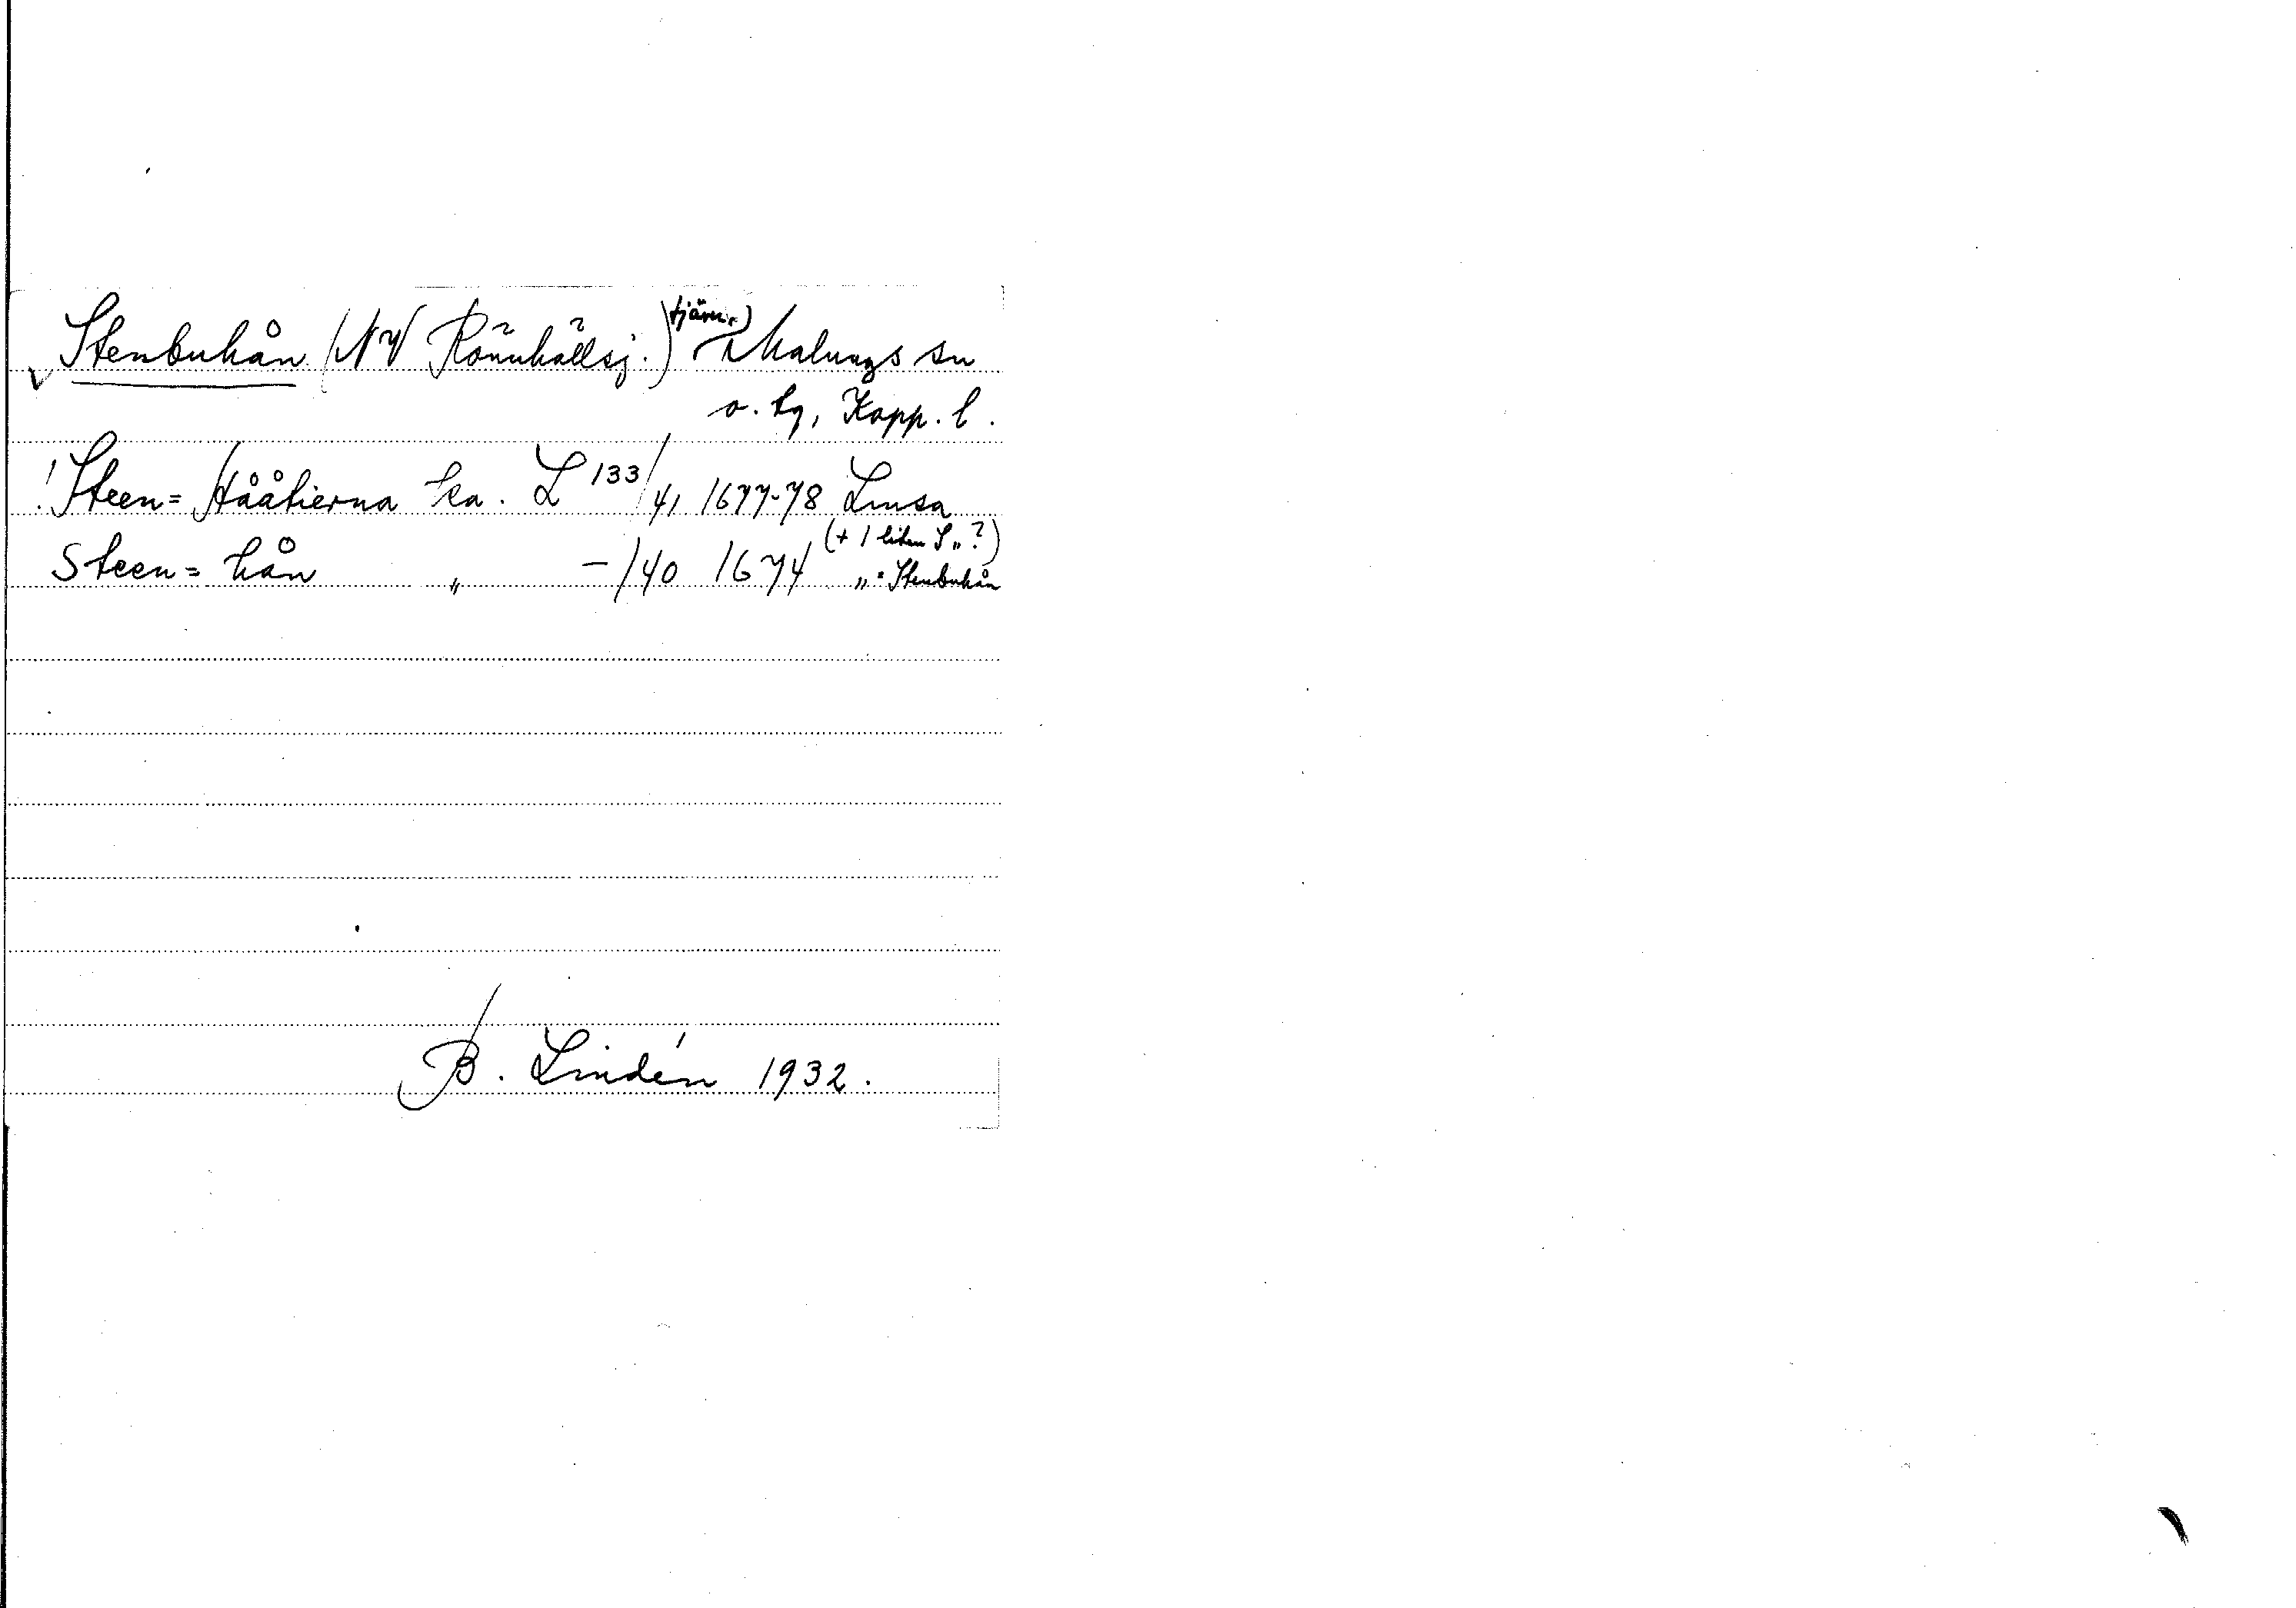 Stenbuhån (NV Rönnhällsj.) (tjärn) Malungs sn
o. tg, Kopp. l.
! Steen=Hååtierna ka. L 133/41 1677-78 Lmsa
(+ 1 liten S„ ?)
Steen=hån „ -/40 1674 „ = Stenbuhån
B. Lindén 1932.